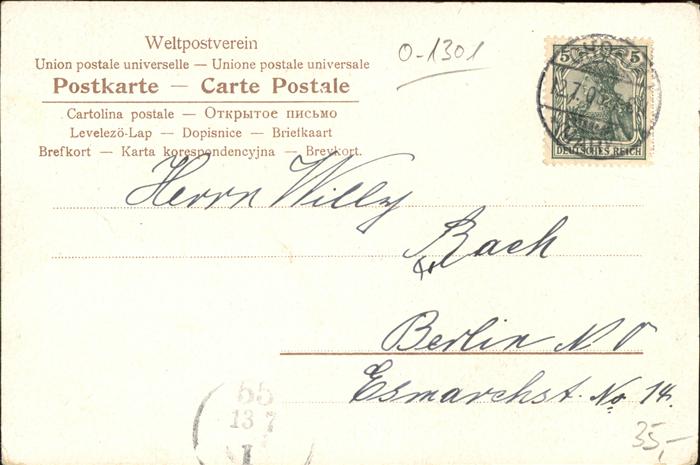 Weltpostverein
Union postale universelle — Unione postale universale
Postkarte — Carte Postale
Cartolina postale — Открытое письмо
Levelező-Lap — Dopisnice — Briefkaart
Brefkort — Karta korespondencyjna — Brevkort.
O-1301
5 5
12.7.0
DEUTSCHES REICH
Herrn Willy
Bach
Berlin N O
Esmarchst. No 14.
55
13 7
35,-